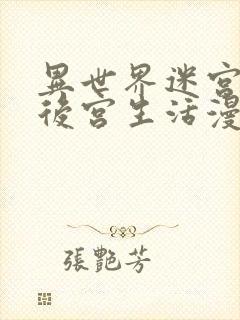 異世界迷宮
後宮生活漫
張艷芳